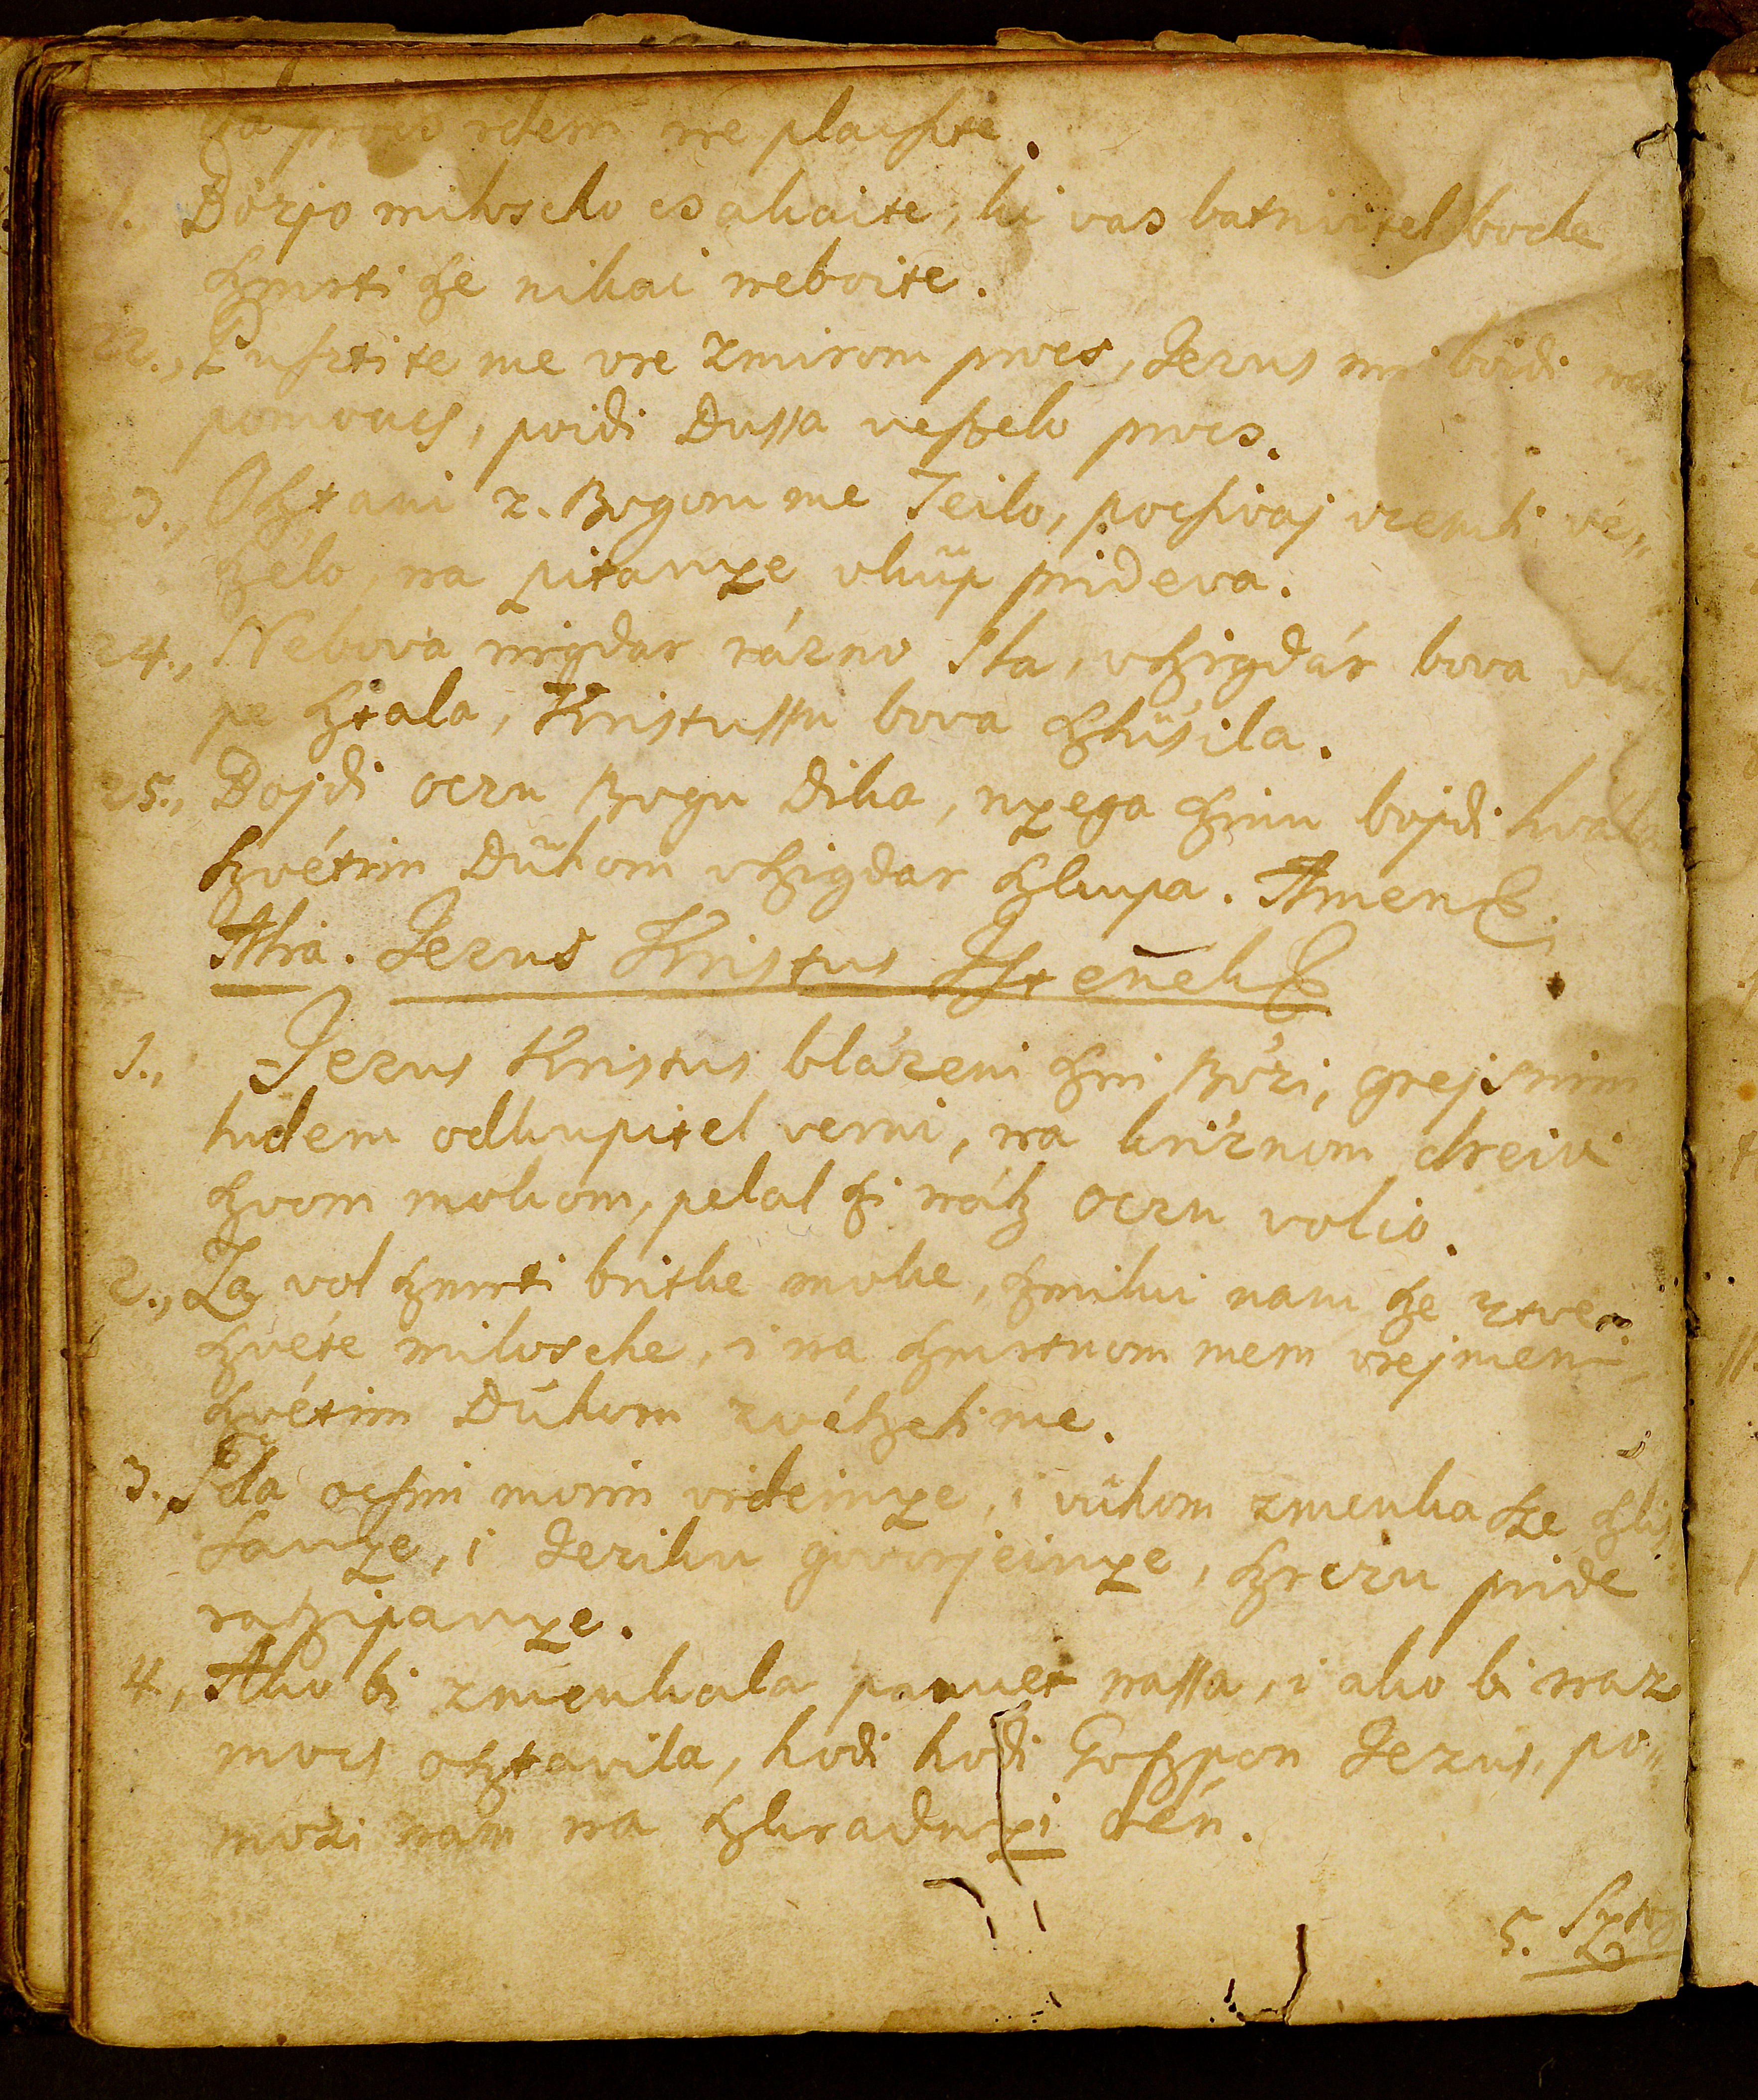 rdem ne placſte.
1., Bóẑjo miloscho csakaite, ki vas batrivitel bode
ſzmrti ſze nikai neboite.
22., Puſztite me vre zmirom procs, Jezus mi boidi na
pomoucs, poidi Dussa veſzelo procs.
23., Oſztani z. Bogom me Teilo, pocſivaj vzemli vé„
ſzélo, na pitanye vküp prideva.
24., Nebova nigdar rázno sla, vſzigdár bova vkü
pe ſztala, Kristussu bova ſzlüsila.
25., Bojdi oczu Bogu Dika, nyega ſzinu bojdi hvala
ſzvétim Dühom vſzigdar ſzkupa. Amen.
Alia. Jezus Kristus
1., Jezus Kristus bláẑeni ſzin Bóẑi, grejsnim
ludem odkupitel verni, na kriẑnom dreivi
ſzvom mokom, pelal ſzi náſz oczu volio.
2., Za vol ſzmrti britke moke, ſzmilui nam ſze ztve„
ſzvéte milosche, i na ſzmrtnom mem vrejmeni
ſzvétim Dühom zvéſzeli me.
3., Gda ocſim moim videinye, i vühom zmenka ſze ſzlis
sanye, i Jeziku govorjeinye, ſzrczu pride
razſzipanye.
4., Ako bi zmenkala pamet nassa, i ako bi naz
mocs oſztavila, hodi hodi Goſzpon Jezus, po„
moẑi nam na ſzkradnyi dén.
5.